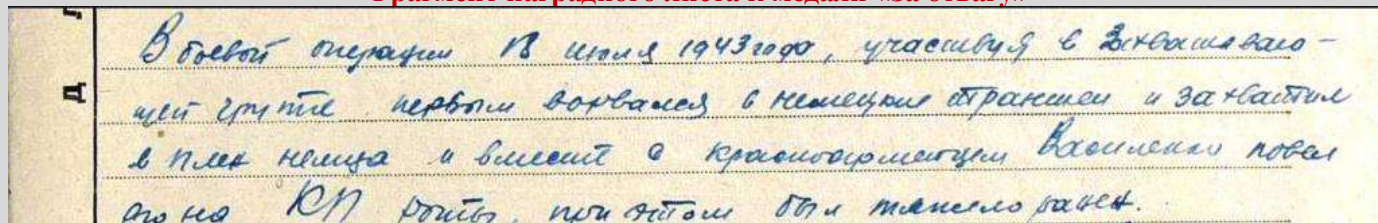 Фрагмент наградного листа к медали «За отвагу»
Д Л
В боевой операции 13 июля 1943 года, участвуя в захватываю-
щей группе первым ворвался в немецкие траншеи и захватил
в плен немца и вместе с красноармейцем Василенко повел
его на КП роты, при этом был тяжело ранен.